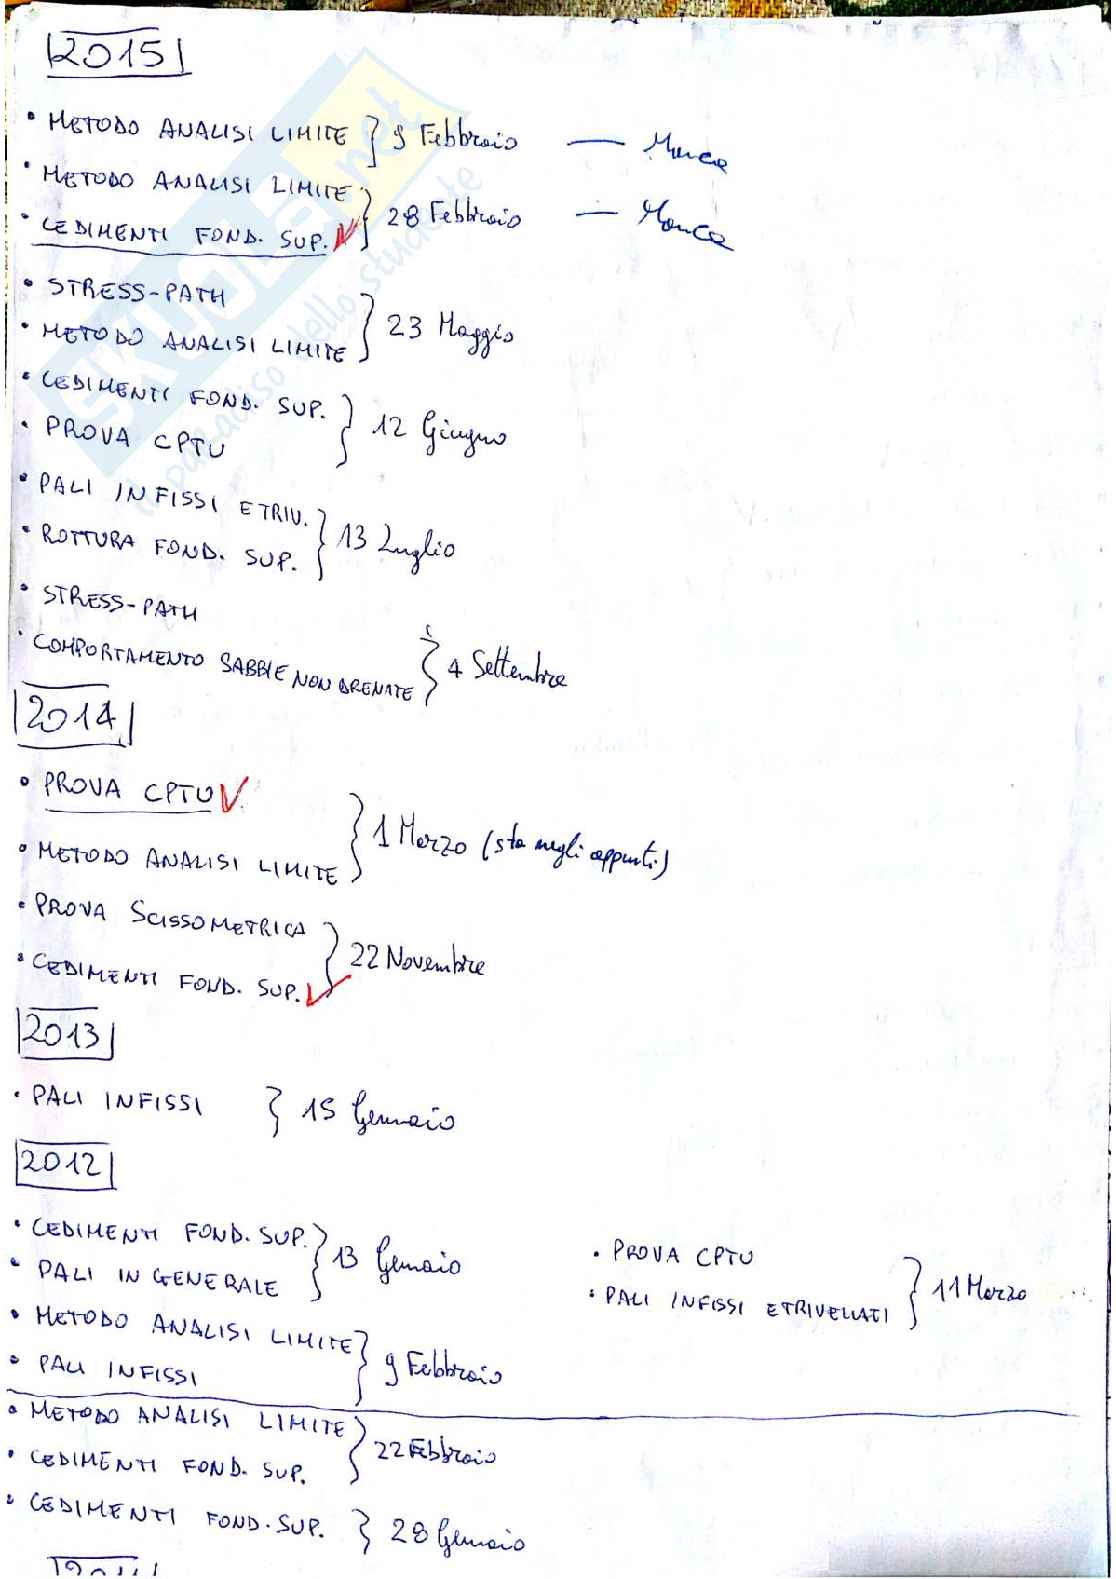 2015
• METODO ANALISI LIMITE } 9 Febbraio — Manca
• METODO ANALISI LIMITE
• CEDIMENTI FOND. SUP. } 28 Febbraio — Manca
• STRESS-PATH
• METODO ANALISI LIMITE } 23 Maggio
• CEDIMENTI FOND. SUP.
• PROVA CPTU } 12 Giugno
• PALI INFISSI E TRIV.
• ROTTURA FOND. SUP. } 13 Luglio
• STRESS-PATH
• COMPORTAMENTO SABBIE NON DRENATE } 4 Settembre
2014
• PROVA CPTU
• METODO ANALISI LIMITE } 1 Marzo (sta negli appunti)
• PROVA SCISSOMETRICA
• CEDIMENTI FOND. SUP. } 22 Novembre
2013
• PALI INFISSI } 15 Gennaio
2012
• CEDIMENTI FOND. SUP.
• PALI IN GENERALE } 13 Gennaio
• METODO ANALISI LIMITE
• PALI INFISSI } 9 Febbraio
• PROVA CPTU
• PALI INFISSI E TRIVELLATI } 11 Marzo
• METODO ANALISI LIMITE
• CEDIMENTI FOND. SUP. } 22 Febbraio
• CEDIMENTI FOND. SUP. } 28 Gennaio
SKUOLA.net
il paradiso dello studente